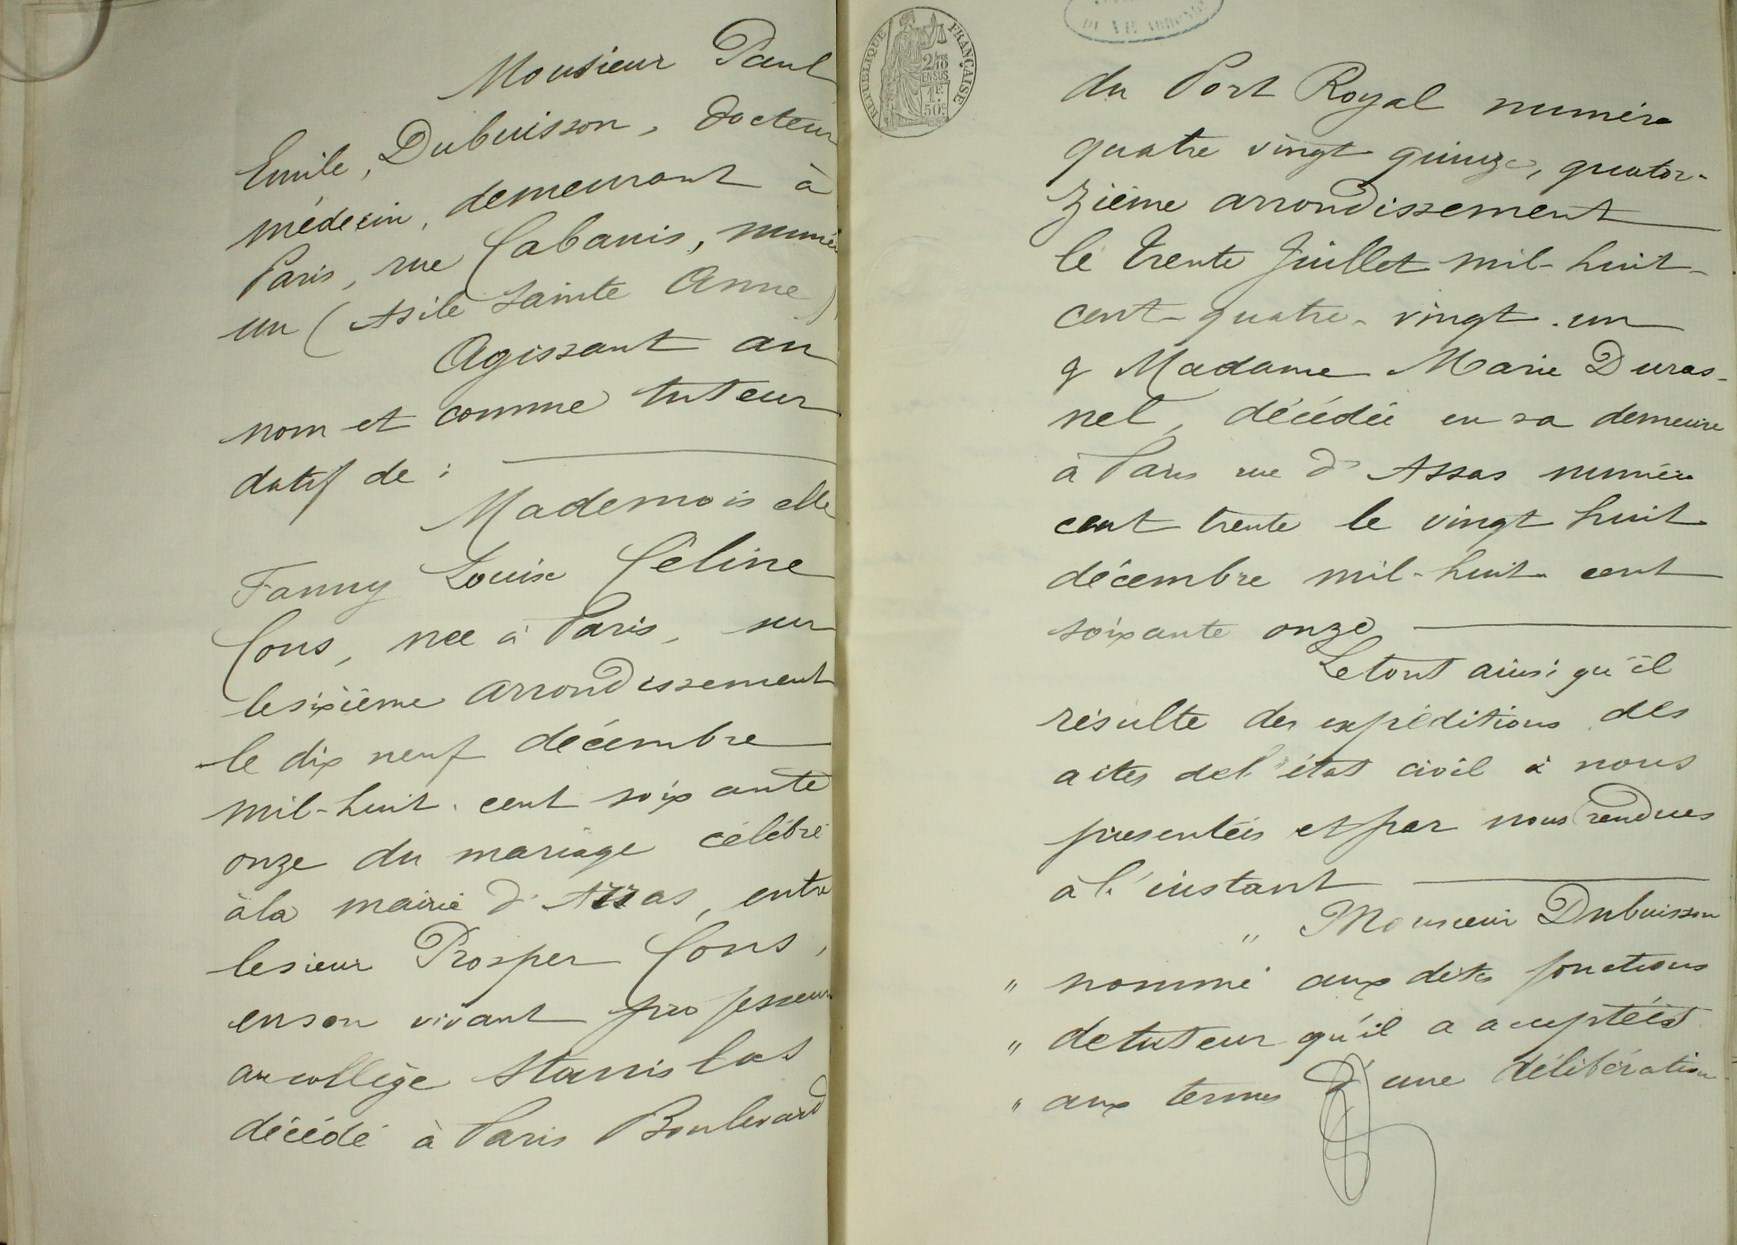 Monsieur Paul
Emile, Dubuisson, docteur
médecin, demeurant à
Paris, rue Cabanis, numéro
un (Asile Sainte Anne)
Agissant au
nom et comme tuteur
datif de :
Mademoiselle
Fanny Louise Céline
Cons, née à Paris, sur
le sixième arrondissement
le dix neuf décembre
mil-huit-cent soixante
onze du mariage célébré
à la mairie d'Assas, entre
le sieur Prosper Cons,
en son vivant professeur
au collège Stanislas
décédé à Paris Boulevard
RÉPUBLIQUE FRANÇAISE
2/10
EN SUS
1F
50C
du Port Royal numéro
quatre vingt quinze, quator-
zième arrondissement
le trente Juillet mil-huit-
cent-quatre-vingt-un
& Madame Marie Duras-
nel, décédée en sa demeure
à Paris rue d'Assas numéro
cent trente le vingt huit
décembre mil-huit-cent
soixante onze
Le tout ainsi qu'il
résulte des expéditions des
actes de l'état civil à nous
présentées et par nous rendues
à l'instant
" Monsieur Dubuisson
" nommé aux dites fonctions
" de tuteur qu'il a acceptées
" aux termes d'une délibération